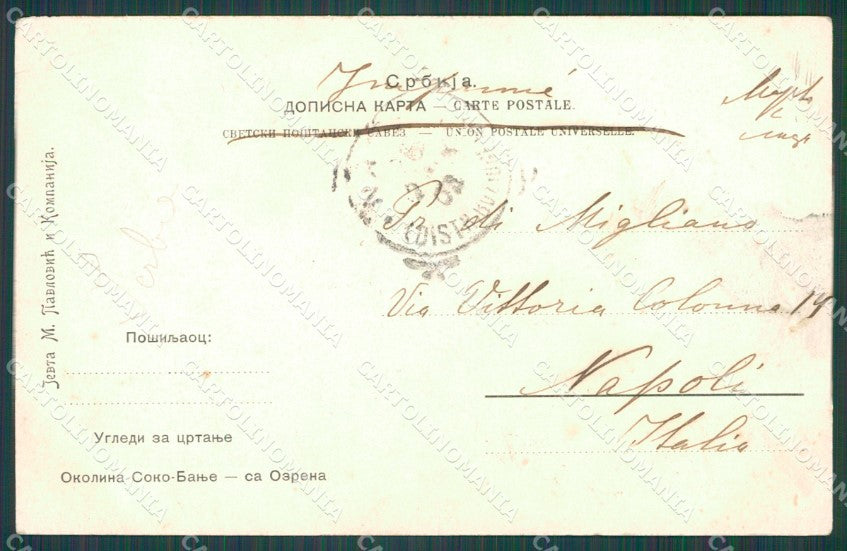 Србија.
Imprimé
ДОПИСНА КАРТА — CARTE POSTALE.
СВЕТСКИ ПОШТАНСКИ САВЕЗ — UNION POSTALE UNIVERSELLE.
di Migliano
Via Vittoria Colonna 14
Napoli
Italia
Јевта М. Павловић и Компанија.
Пошиљаоц:
Угледи за цртање
Околина Соко-Бање — са Озрена
CARTOLINOMANIA